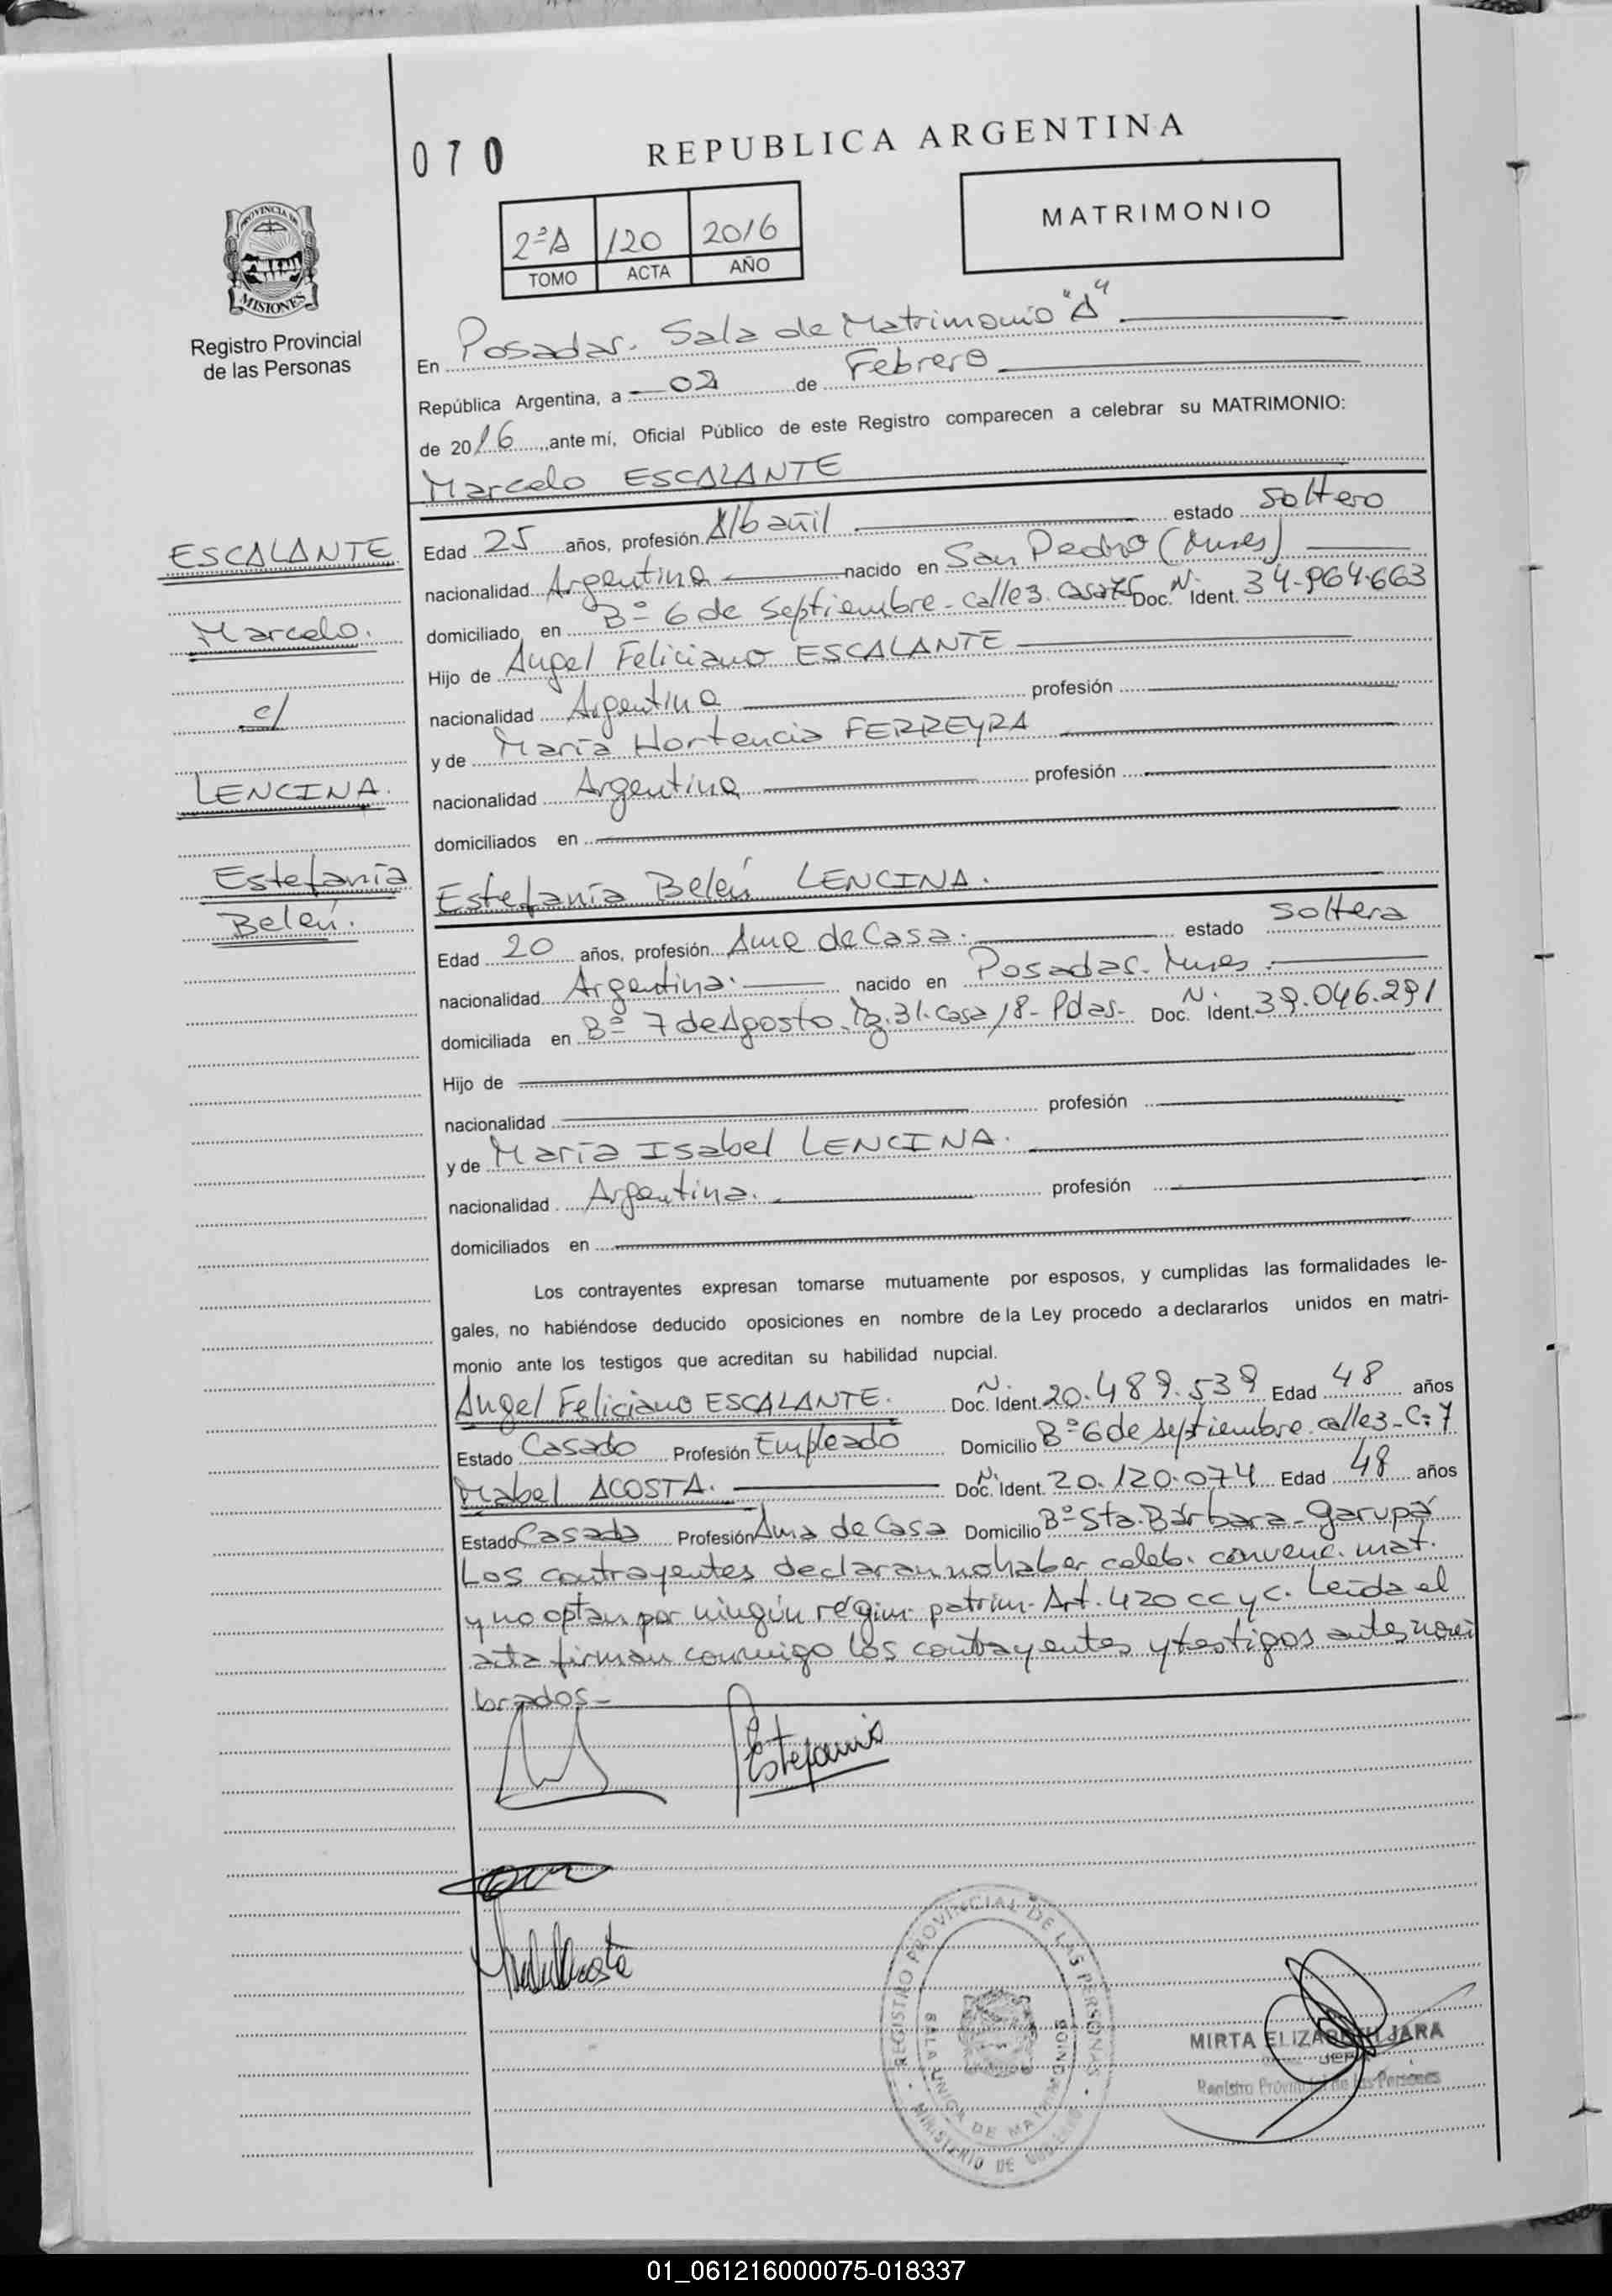 070
REPUBLICA ARGENTINA
MATRIMONIO
2ºA 120 2016
TOMO ACTA AÑO
PROVINCIA DE
MISIONES
Registro Provincial
de las Personas
En Posadas. Sala de Matrimonio "A"
República Argentina, a 02 de Febrero
de 2016, ante mí, Oficial Público de este Registro comparecen a celebrar su MATRIMONIO:
Marcelo ESCALANTE
Edad 25 años, profesión Albañil estado Soltero
nacionalidad Argentina nacido en San Pedro (Mnes)
domiciliado en Bº 6 de Septiembre - calle 3. casa 75 Doc. Nº Ident. 34.964.663
Hijo de Angel Feliciano ESCALANTE
nacionalidad Argentina profesión
y de María Hortencia FERREYRA
nacionalidad Argentina profesión
domiciliados en
ESCALANTE
Marcelo.
c/
LENCINA.
Estefanía
Belén.
Estefanía Belén LENCINA.
Edad 20 años, profesión Ama de Casa. estado Soltera
nacionalidad Argentina. nacido en Posadas. Mnes.
domiciliada en Bº 7 de Agosto. Mz. 31. Casa 18 - Pdas - Doc. Nº Ident. 39.046.291
Hijo de
nacionalidad profesión
y de María Isabel LENCINA.
nacionalidad Argentina. profesión
domiciliados en
Los contrayentes expresan tomarse mutuamente por esposos, y cumplidas las formalidades le-
gales, no habiéndose deducido oposiciones en nombre de la Ley procedo a declararlos unidos en matri-
monio ante los testigos que acreditan su habilidad nupcial.
Angel Feliciano ESCALANTE. Doc. Nº Ident. 20.489.539 Edad 48 años
Estado Casado Profesión Empleado Domicilio Bº 6 de septiembre calle 3 - C: 7
Mabel ACOSTA. Doc. Nº Ident. 20.120.074 Edad 48 años
Estado Casada Profesión Ama de Casa Domicilio Bº Sta. Bárbara - Garupá
Los contrayentes declaran no haber celeb. convenc. mat.
y no optan por ningún régim. patrim. Art. 420 CC y C. Leída el
acta firman conmigo los contrayentes y testigos antes nom
brados -
Estefania
Mabel Acosta
REGISTRO PROVINCIAL DE LAS PERSONAS
SALA UNICA DE MATRIMONIOS
MINISTERIO DE GOBIERNO
MIRTA ELIZABETH JARA
JEFA
Registro Provincial de las Personas
01_061216000075-018337